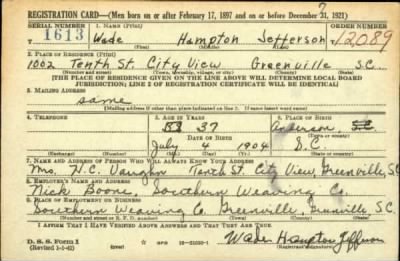 REGISTRATION CARD—(Men born on or after February 17, 1897 and on or before December 31, 1921)
SERIAL NUMBER 1. NAME (Print) ORDER NUMBER
1613 Wade Hampton Jefferson 12089
(First) (Middle) (Last)
2. PLACE OF RESIDENCE (Print)
1002 Tenth St. City View Greenville S.C.
(Number and street) (Town, township, village, or city) (County) (State)
[THE PLACE OF RESIDENCE GIVEN ON THE LINE ABOVE WILL DETERMINE LOCAL BOARD
JURISDICTION; LINE 2 OF REGISTRATION CERTIFICATE WILL BE IDENTICAL]
3. MAILING ADDRESS
same
[Mailing address if other than place indicated on line 2. If same insert word same]
4. TELEPHONE 5. AGE IN YEARS 6. PLACE OF BIRTH
37 Anderson S.C.
DATE OF BIRTH (Town or county)
July 4 1904 S.C.
(Exchange) (Number) (Mo.) (Day) (Yr.) (State or country)
7. NAME AND ADDRESS OF PERSON WHO WILL ALWAYS KNOW YOUR ADDRESS
Mrs. H.C. Vaughn Tenth St. City View, Greenville, S.C.
8. EMPLOYER'S NAME AND ADDRESS
Nick Boone, Southern Weaving Co.
9. PLACE OF EMPLOYMENT OR BUSINESS
Southern Weaving Co. Greenville, Greenville, S.C.
(Number and street or R. F. D. number) (Town) (County) (State)
I AFFIRM THAT I HAVE VERIFIED ABOVE ANSWERS AND THAT THEY ARE TRUE.
D. S. S. Form 1
(Revised 1-1-42) Wade Hampton Jefferson